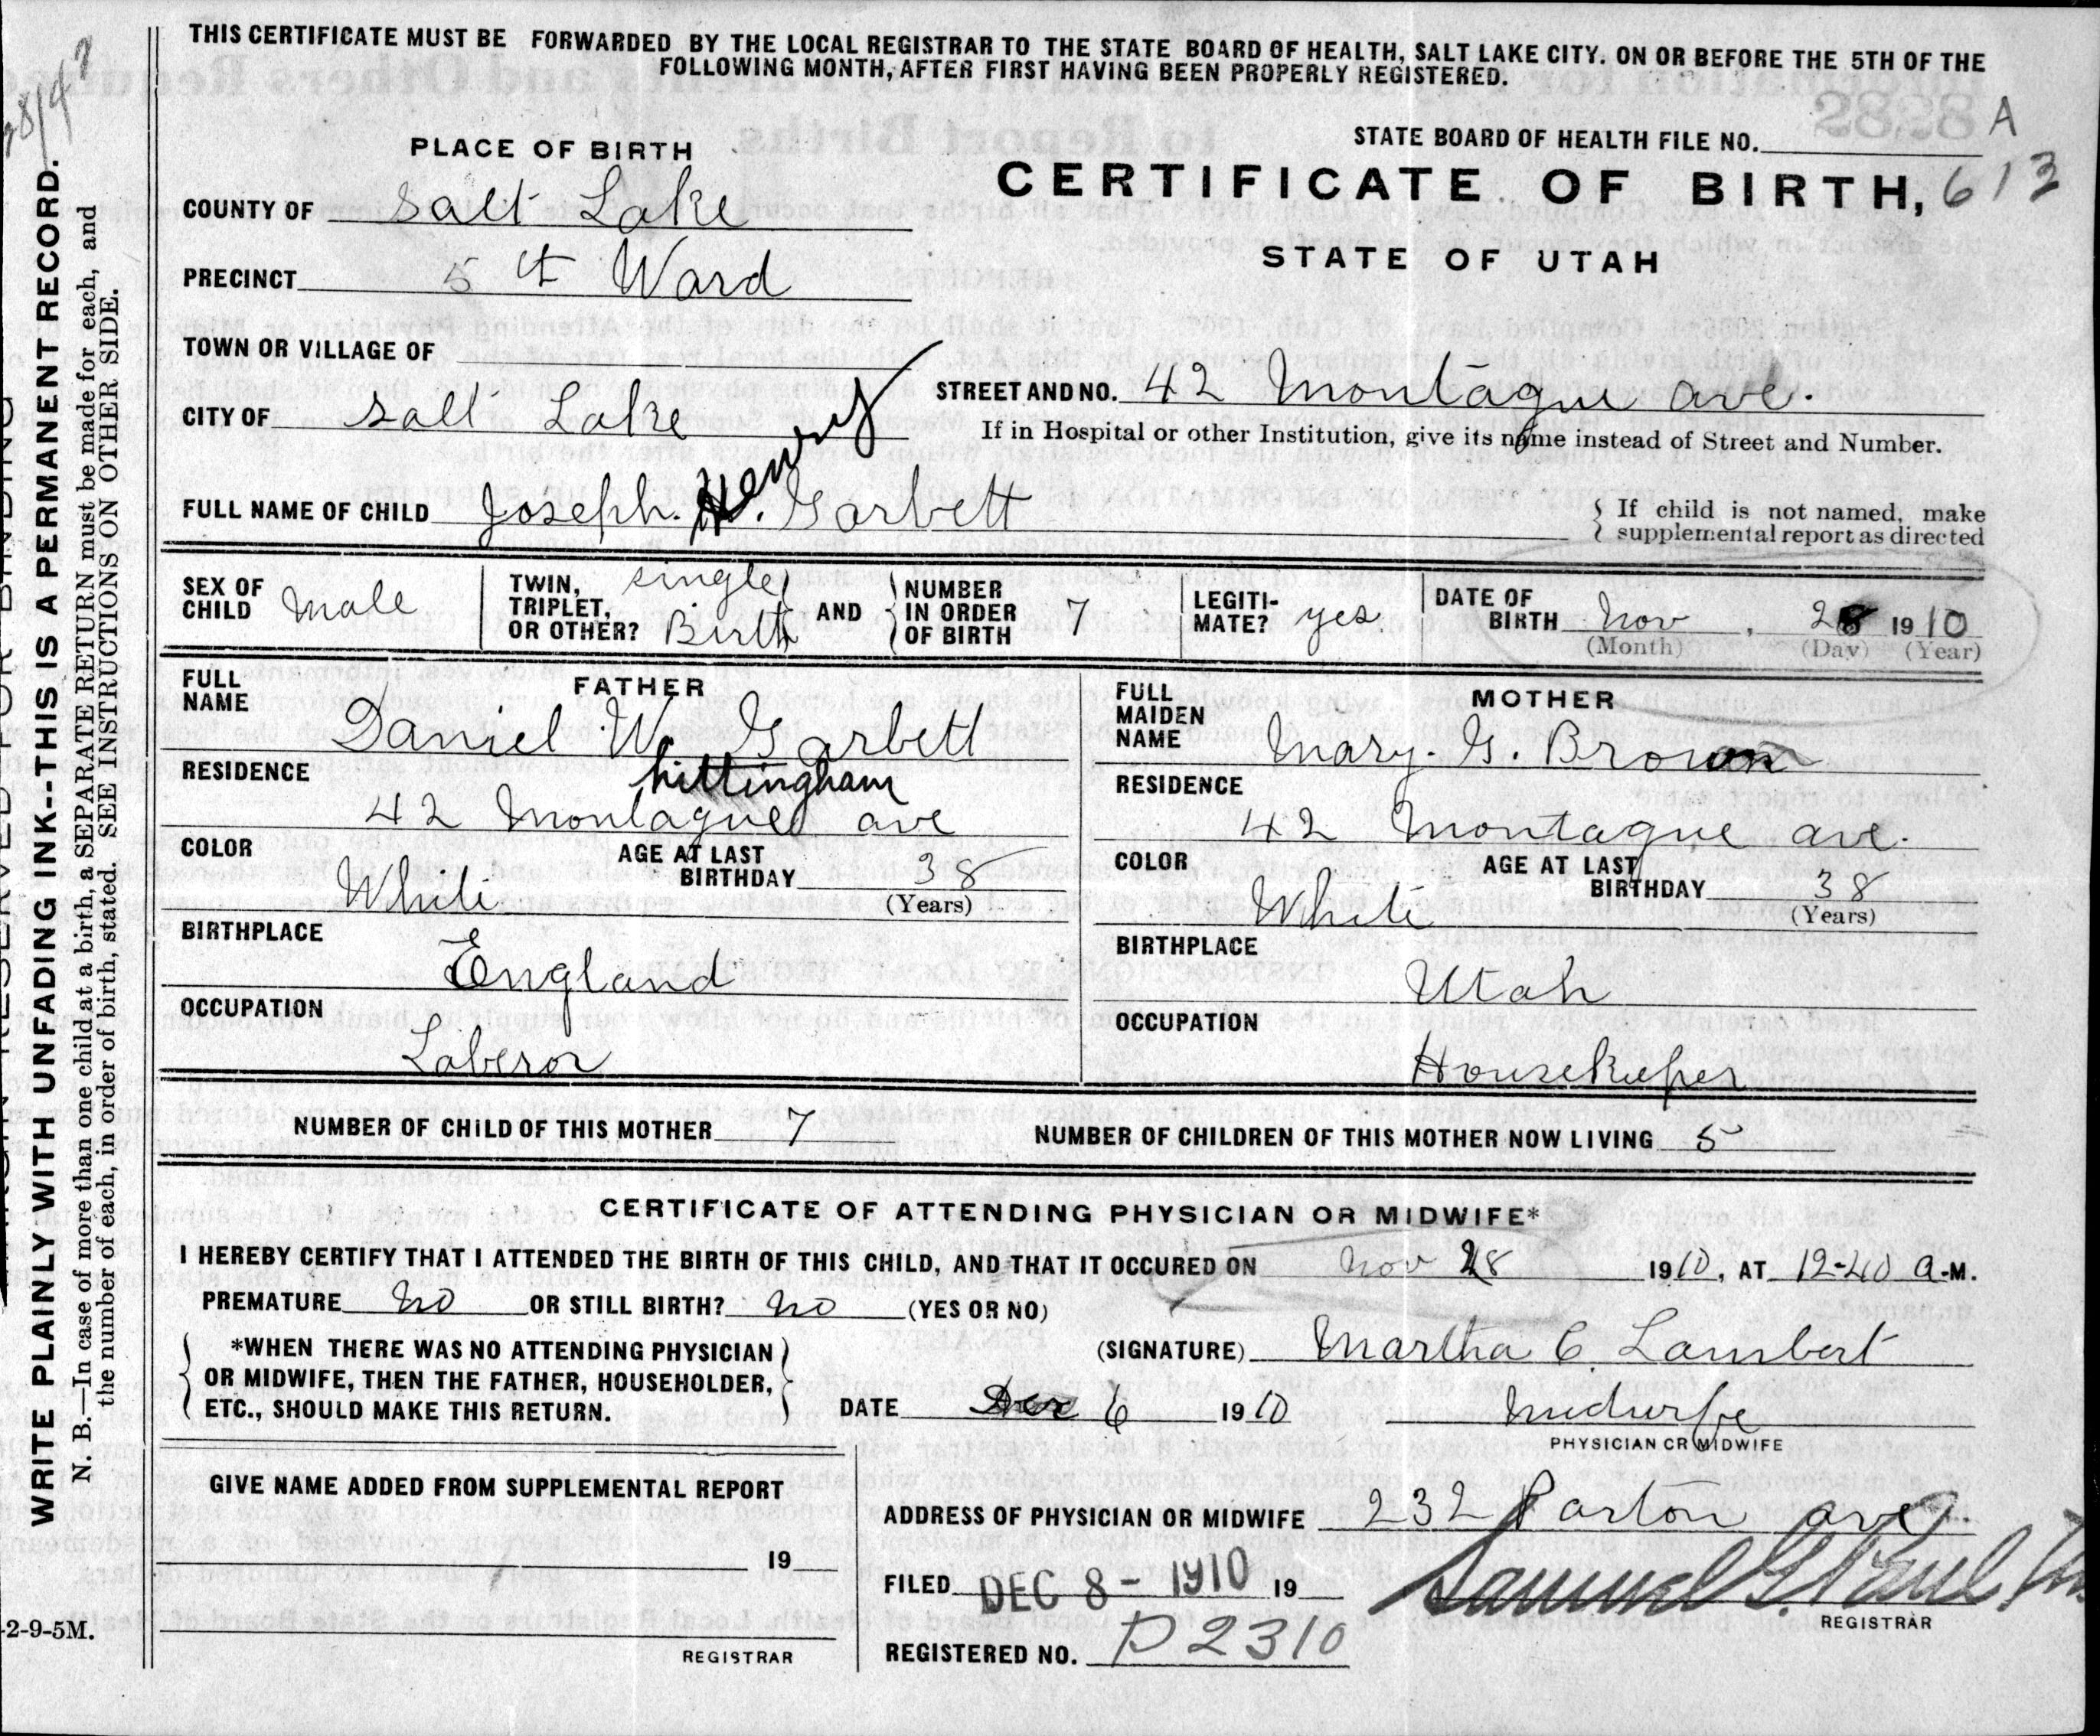 THIS CERTIFICATE MUST BE FORWARDED BY THE LOCAL REGISTRAR TO THE STATE BOARD OF HEALTH, SALT LAKE CITY. ON OR BEFORE THE 5TH OF THE
FOLLOWING MONTH, AFTER FIRST HAVING BEEN PROPERLY REGISTERED.
2828 A
STATE BOARD OF HEALTH FILE NO.
PLACE OF BIRTH
CERTIFICATE OF BIRTH, 613
STATE OF UTAH
COUNTY OF Salt Lake
PRECINCT 5th Ward
TOWN OR VILLAGE OF
CITY OF Salt Lake
STREET AND NO. 42 Montague ave.
If in Hospital or other Institution, give its name instead of Street and Number.
Henry
FULL NAME OF CHILD Joseph. H. Garbett
{ If child is not named, make
supplemental report as directed
SEX OF CHILD Male
TWIN, TRIPLET, OR OTHER? single Birth
AND
NUMBER IN ORDER OF BIRTH 7
LEGITI-MATE? yes
DATE OF BIRTH Nov, 28 1910
(Month) (Day) (Year)
FATHER
FULL NAME Daniel W. Garbett
hittingham
RESIDENCE 42 Montague ave
COLOR White
AGE AT LAST BIRTHDAY 38
(Years)
BIRTHPLACE England
OCCUPATION Laberor
MOTHER
FULL MAIDEN NAME Mary. G. Brown
RESIDENCE 42 Montague ave.
COLOR White
AGE AT LAST BIRTHDAY 38
(Years)
BIRTHPLACE Utah
OCCUPATION Housekeeper
NUMBER OF CHILD OF THIS MOTHER 7
NUMBER OF CHILDREN OF THIS MOTHER NOW LIVING 5
CERTIFICATE OF ATTENDING PHYSICIAN OR MIDWIFE*
I HEREBY CERTIFY THAT I ATTENDED THE BIRTH OF THIS CHILD, AND THAT IT OCCURED ON Nov 28 1910, AT 12-40 a.M.
PREMATURE No OR STILL BIRTH? No (YES OR NO)
*WHEN THERE WAS NO ATTENDING PHYSICIAN
OR MIDWIFE, THEN THE FATHER, HOUSEHOLDER,
ETC., SHOULD MAKE THIS RETURN.
(SIGNATURE) Martha C. Lambert
DATE Dec 6 1910
Midwife
PHYSICIAN OR MIDWIFE
GIVE NAME ADDED FROM SUPPLEMENTAL REPORT
19
REGISTRAR
ADDRESS OF PHYSICIAN OR MIDWIFE 232 Parton ave.
FILED DEC 8 - 1910 19
Samuel G. Paul
REGISTRAR
REGISTERED NO. D2310
WRITE PLAINLY WITH UNFADING INK--THIS IS A PERMANENT RECORD.
N. B.—In case of more than one child at a birth, a SEPARATE RETURN must be made for each, and
the number of each, in order of birth, stated. SEE INSTRUCTIONS ON OTHER SIDE.
-2-9-5M.